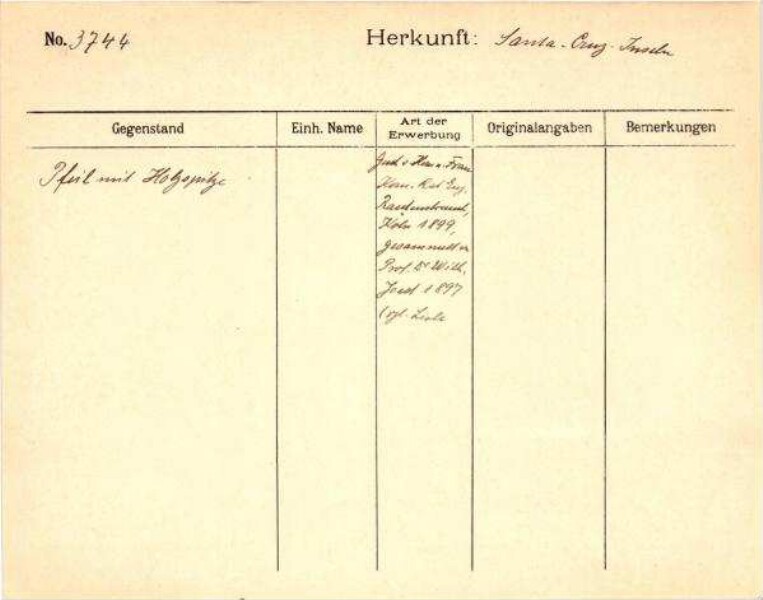 No. 3744
Herkunft: Santa-Cruz-Inseln
Gegenstand
Einh. Name
Art der
Erwerbung
Originalangaben
Bemerkungen
Pfeil mit Holzspitze
v. Herrn u. Frau
Kom. Rat Eug.
Rautenstrauch,
Köln 1899,
gesammelt v.
Prof. Dr Wilh.
Joest 1897
(vgl. Liste